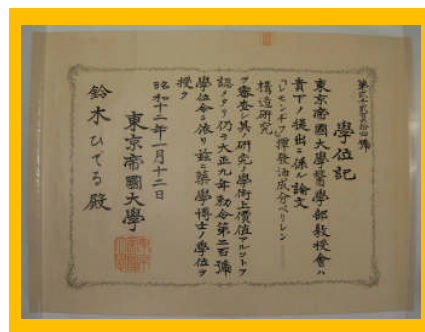 學位記
東京帝國大學醫學部敎授會ハ
貴下ノ提出ニ係ル論文
「レモンヂソ」揮發油成分ペリレン
構造研究
ヲ審査シ其ノ研究ノ學術上價値アルコトヲ
認メタリ仍テ大正九年勅令第二百號
學位令ニ依リ玆ニ藥學博士ノ學位ヲ
授ク
昭和十二年一月十二日
東京帝國大學
鈴木ひでる殿